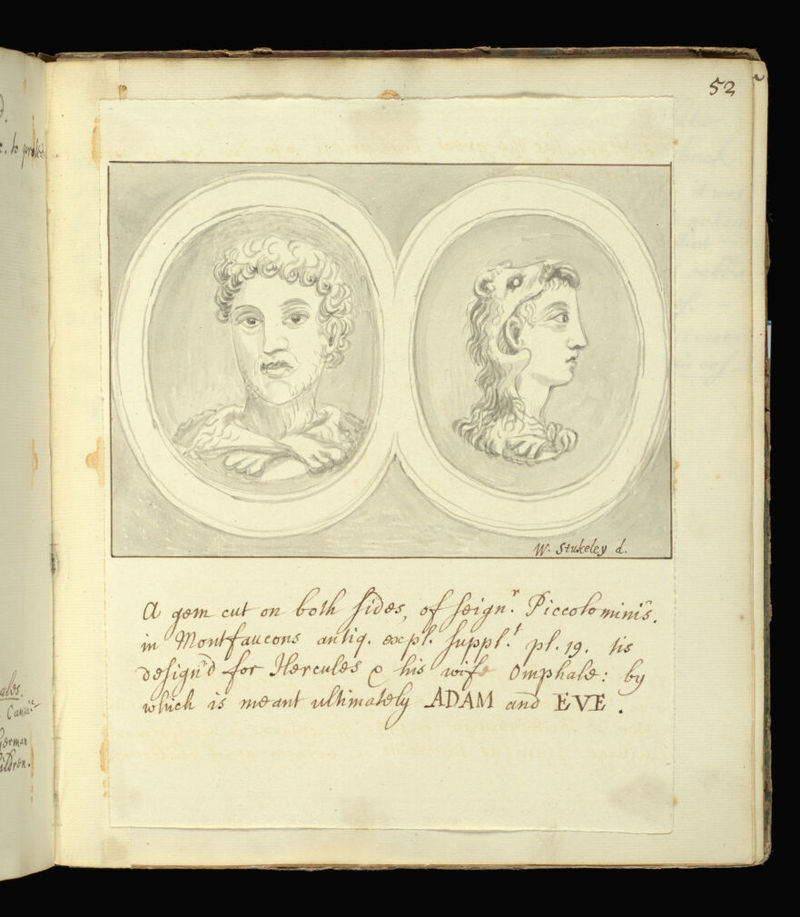 52
W. Stukeley d.
A gem cut on both sides, of seignr. Piccolomini's.
in Montfaucons antiq. expl. supplt. pl. 19. tis
design'd for Hercules & his wife Omphale: by
which is meant ultimately ADAM and EVE.
German